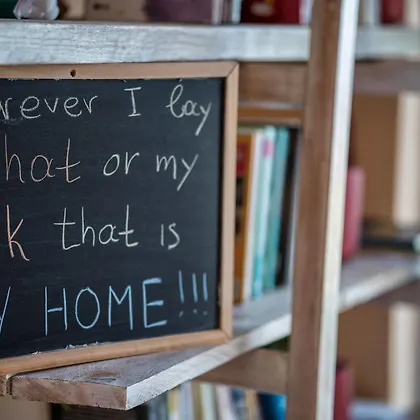 rever I lay
hat or my
k that is
Y HOME!!!